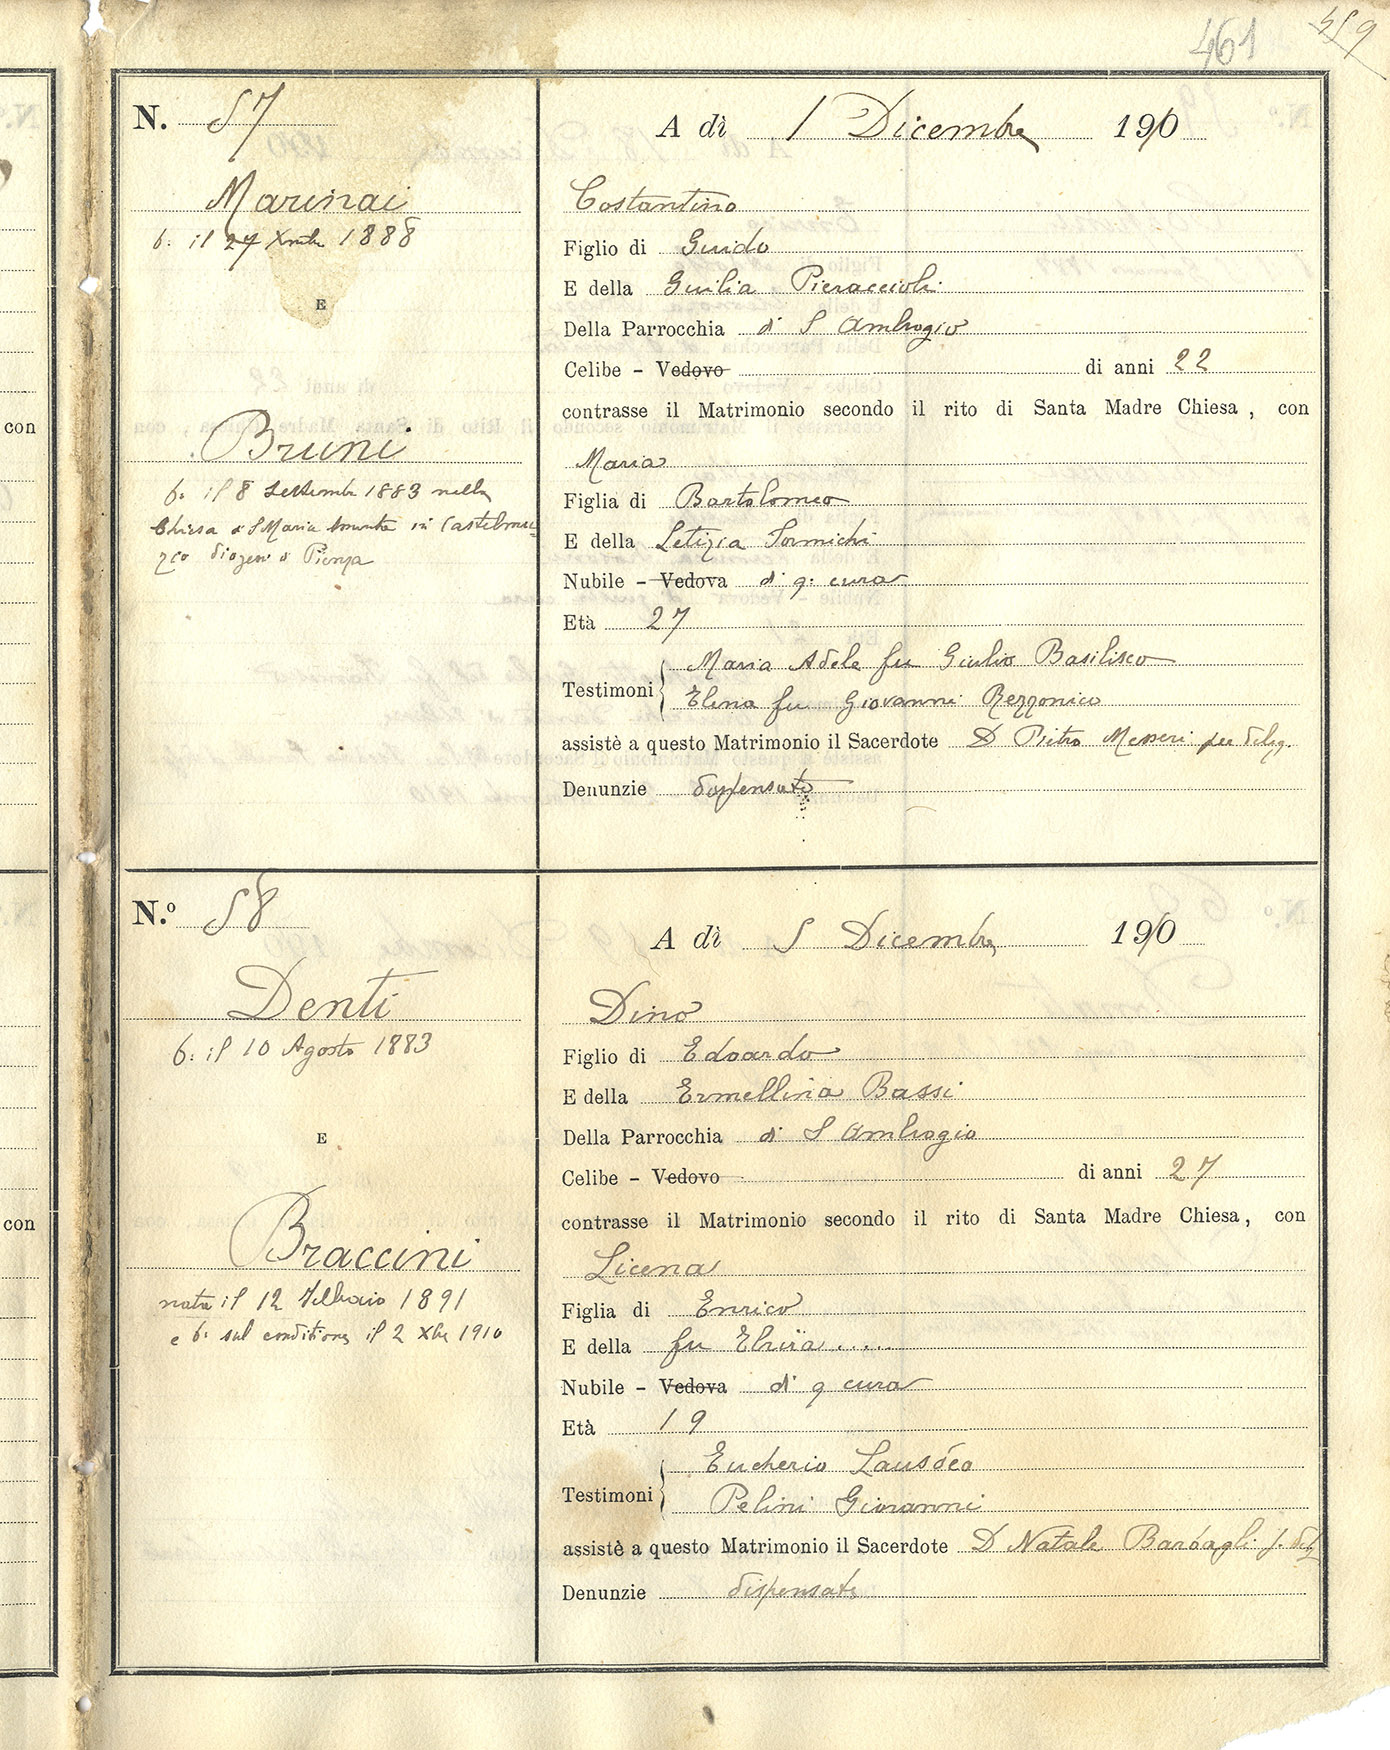 461
459
N. 57
A dì 1 Dicembre 1910
Marinai
b. il 27 Xmbre 1888
E
Costantino
Figlio di Guido
E della Giulia Pieraccioli
Della Parrocchia di S Ambrogio
Celibe - Vedovo di anni 22
contrasse il Matrimonio secondo il rito di Santa Madre Chiesa, con
Bruni
b. il 8 Settembre 1883 nella
Chiesa di S Maria in Castelmuz=
zo diogesi di Pienza
Maria
Figlia di Bartolomeo
E della Letizia Sormichi
Nubile - Vedova di q. cura
Età 27
Testimoni { Maria Adele fu Giulio Basilisco
Elena fu Giovanni Rezzonico
assistè a questo Matrimonio il Sacerdote D Pietro Messeri per deleg.
Denunzie dispensate
N.º 58
A dì 5 Dicembre 1910
Denti
b. il 10 Agosto 1883
E
Dino
Figlio di Edoardo
E della Ermellina Bassi
Della Parrocchia di S Ambrogio
Celibe - Vedovo di anni 27
contrasse il Matrimonio secondo il rito di Santa Madre Chiesa, con
Braccini
nata il 12 Febbraio 1891
e b. sub conditione il 2 Xbre 1910
Licena
Figlia di Enrico
E della fu Elvira .....
Nubile - Vedova di q cura
Età 19
Testimoni { Eucherio
Pelini Giovanni
assistè a questo Matrimonio il Sacerdote D Natale Barbagli p. del.
Denunzie dispensate
con
con